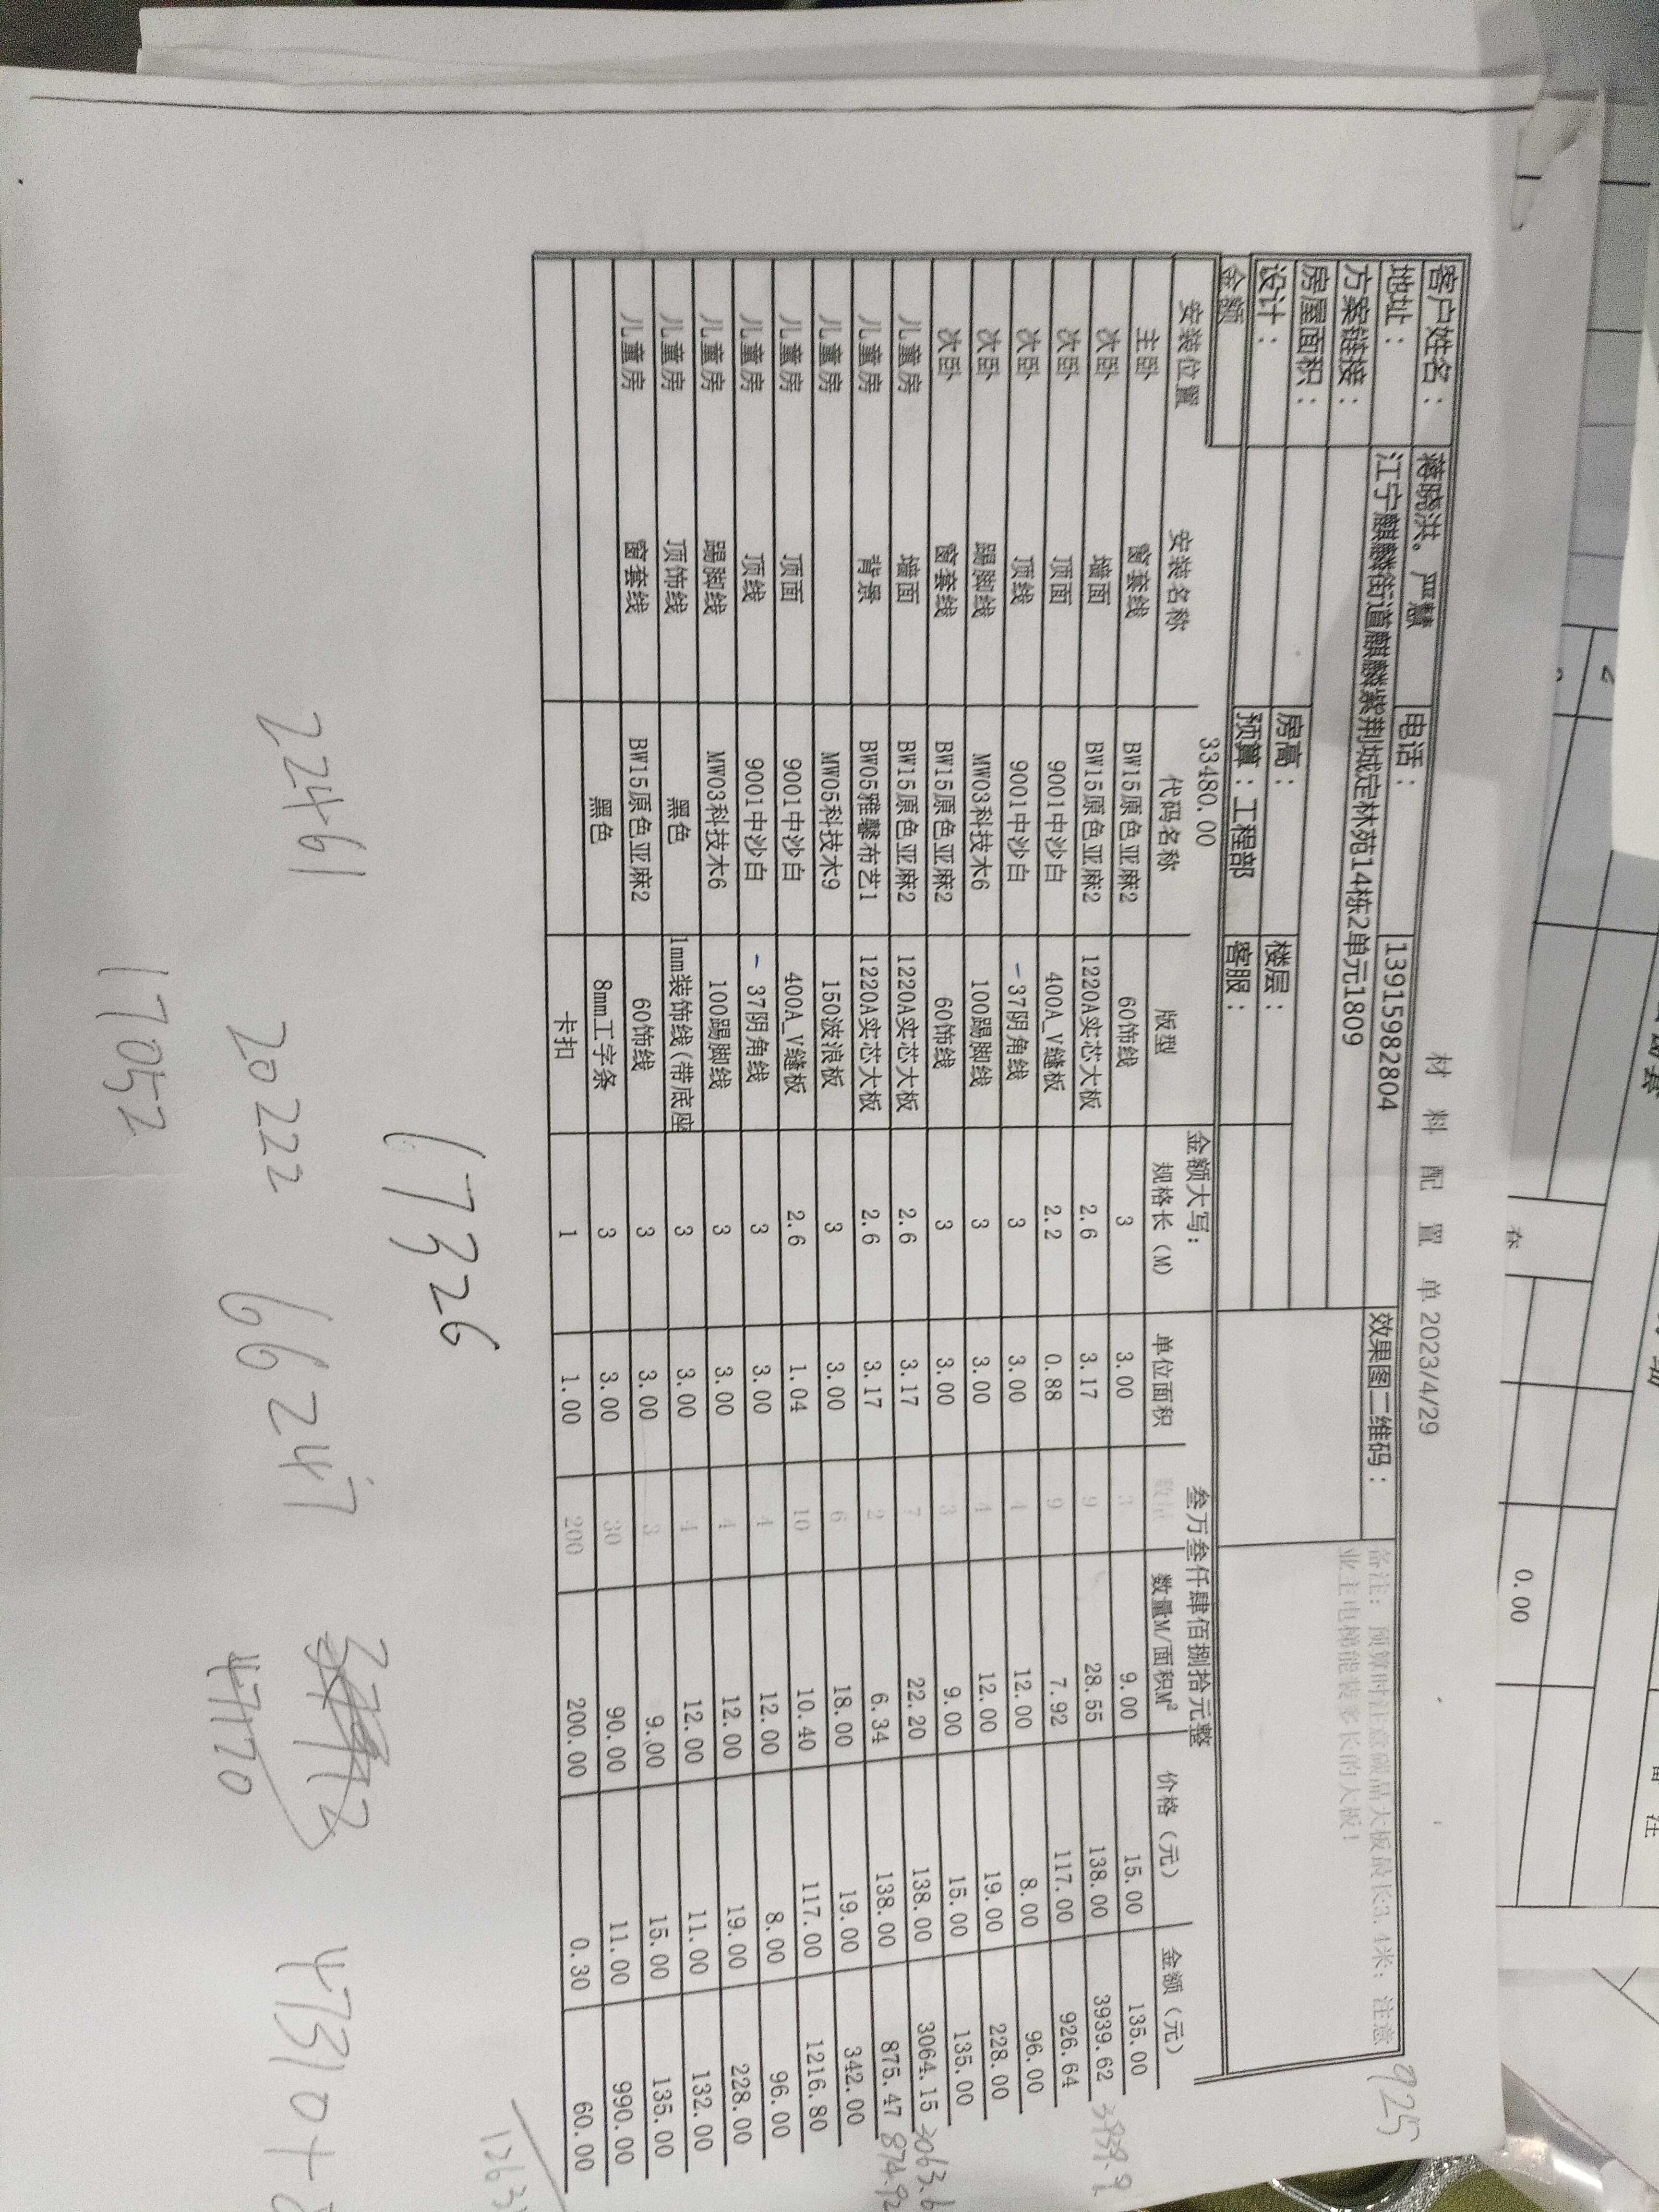 材 料 配 置 单 2023/4/29
客户姓名： 蒋晓洪。 严慧 电话： 13915982804 效果图二维码： 备注：预算时注意碳晶大板最长3.4米；注意
地址： 江宁麒麟街道麒麟紫荆城定林苑14栋2单元1809 业主电梯能装多长的大板！
方案链接：
房屋面积： 房高： 楼层：
设计： 预算：工程部 客服：
金额 33480.00 金额大写： 叁万叁仟肆佰捌拾元整
安装位置 安装名称 代码名称 版型 规格长（M） 单位面积 数量 数量M/面积M² 价格（元） 金额（元）
主卧 窗套线 BW15原色亚麻2 60饰线 3 3.00 3 9.00 15.00 135.00
次卧 墙面 BW15原色亚麻2 1220A实芯大板 2.6 3.17 9 28.55 138.00 3939.62 3939.9
次卧 顶面 9001中沙白 400A_V缝板 2.2 0.88 9 7.92 117.00 926.64
次卧 顶线 9001中沙白 -37阴角线 3 3.00 4 12.00 8.00 96.00
次卧 踢脚线 MW03科技木6 100踢脚线 3 3.00 4 12.00 19.00 228.00
次卧 窗套线 BW15原色亚麻2 60饰线 3 3.00 3 9.00 15.00 135.00
儿童房 墙面 BW15原色亚麻2 1220A实芯大板 2.6 3.17 7 22.20 138.00 3064.15 3063.6
儿童房 背景 BW05雅馨布艺1 1220A实芯大板 2.6 3.17 2 6.34 138.00 875.47 874.92
儿童房 MW05科技木9 150波浪板 3 3.00 6 18.00 19.00 342.00
儿童房 顶面 9001中沙白 400A_V缝板 2.6 1.04 10 10.40 117.00 1216.80
儿童房 顶线 9001中沙白 -37阴角线 3 3.00 4 12.00 8.00 96.00
儿童房 踢脚线 MW03科技木6 100踢脚线 3 3.00 4 12.00 19.00 228.00
儿童房 顶饰线 黑色 1mm装饰线(带底座 3 3.00 4 12.00 11.00 132.00
儿童房 窗套线 BW15原色亚麻2 60饰线 3 3.00 3 9.00 15.00 135.00
黑色 8mm工字条 3 3.00 30 90.00 11.00 990.00
卡扣 1 1.00 200 200.00 0.30 60.00
925
1263
17326
2461 2022 6624 4770 47310+
17052
0.00
备 注